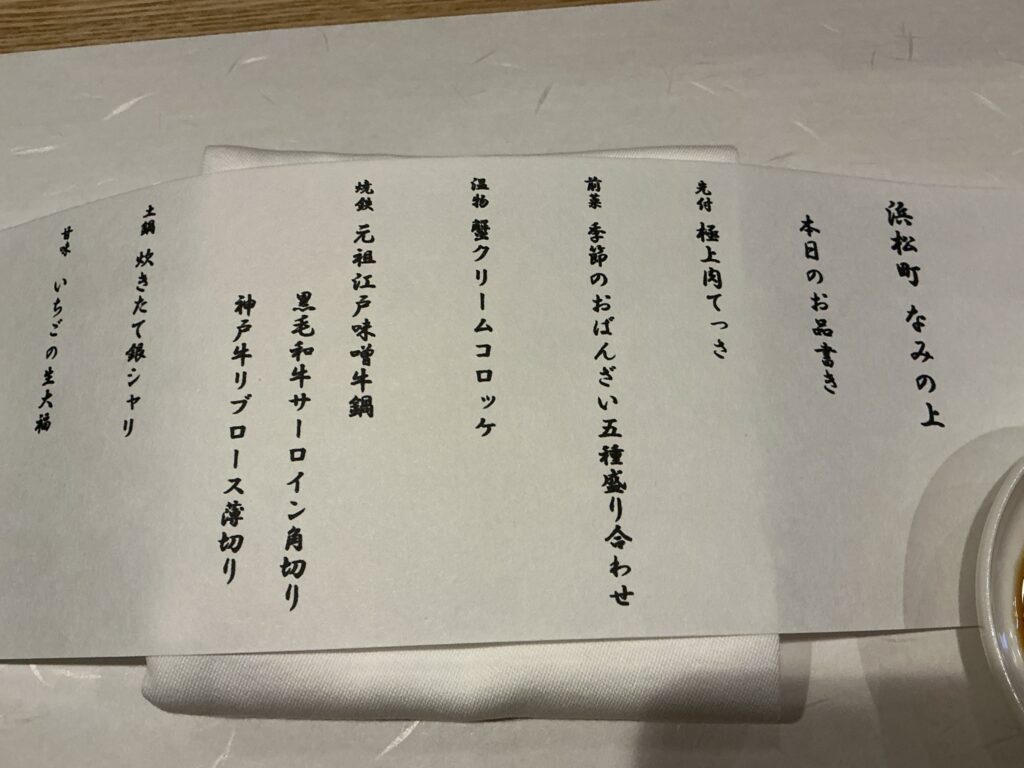 浜松町 なみの上
本日のお品書き
先付 極上肉てっさ
前菜 季節のおばんざい五種盛り合わせ
温物 蟹クリームコロッケ
焼鉄 元祖江戸味噌牛鍋
黒毛和牛サーロイン角切り
神戸牛リブロース薄切り
土鍋 炊きたて銀シャリ
甘味 いちごの生大福